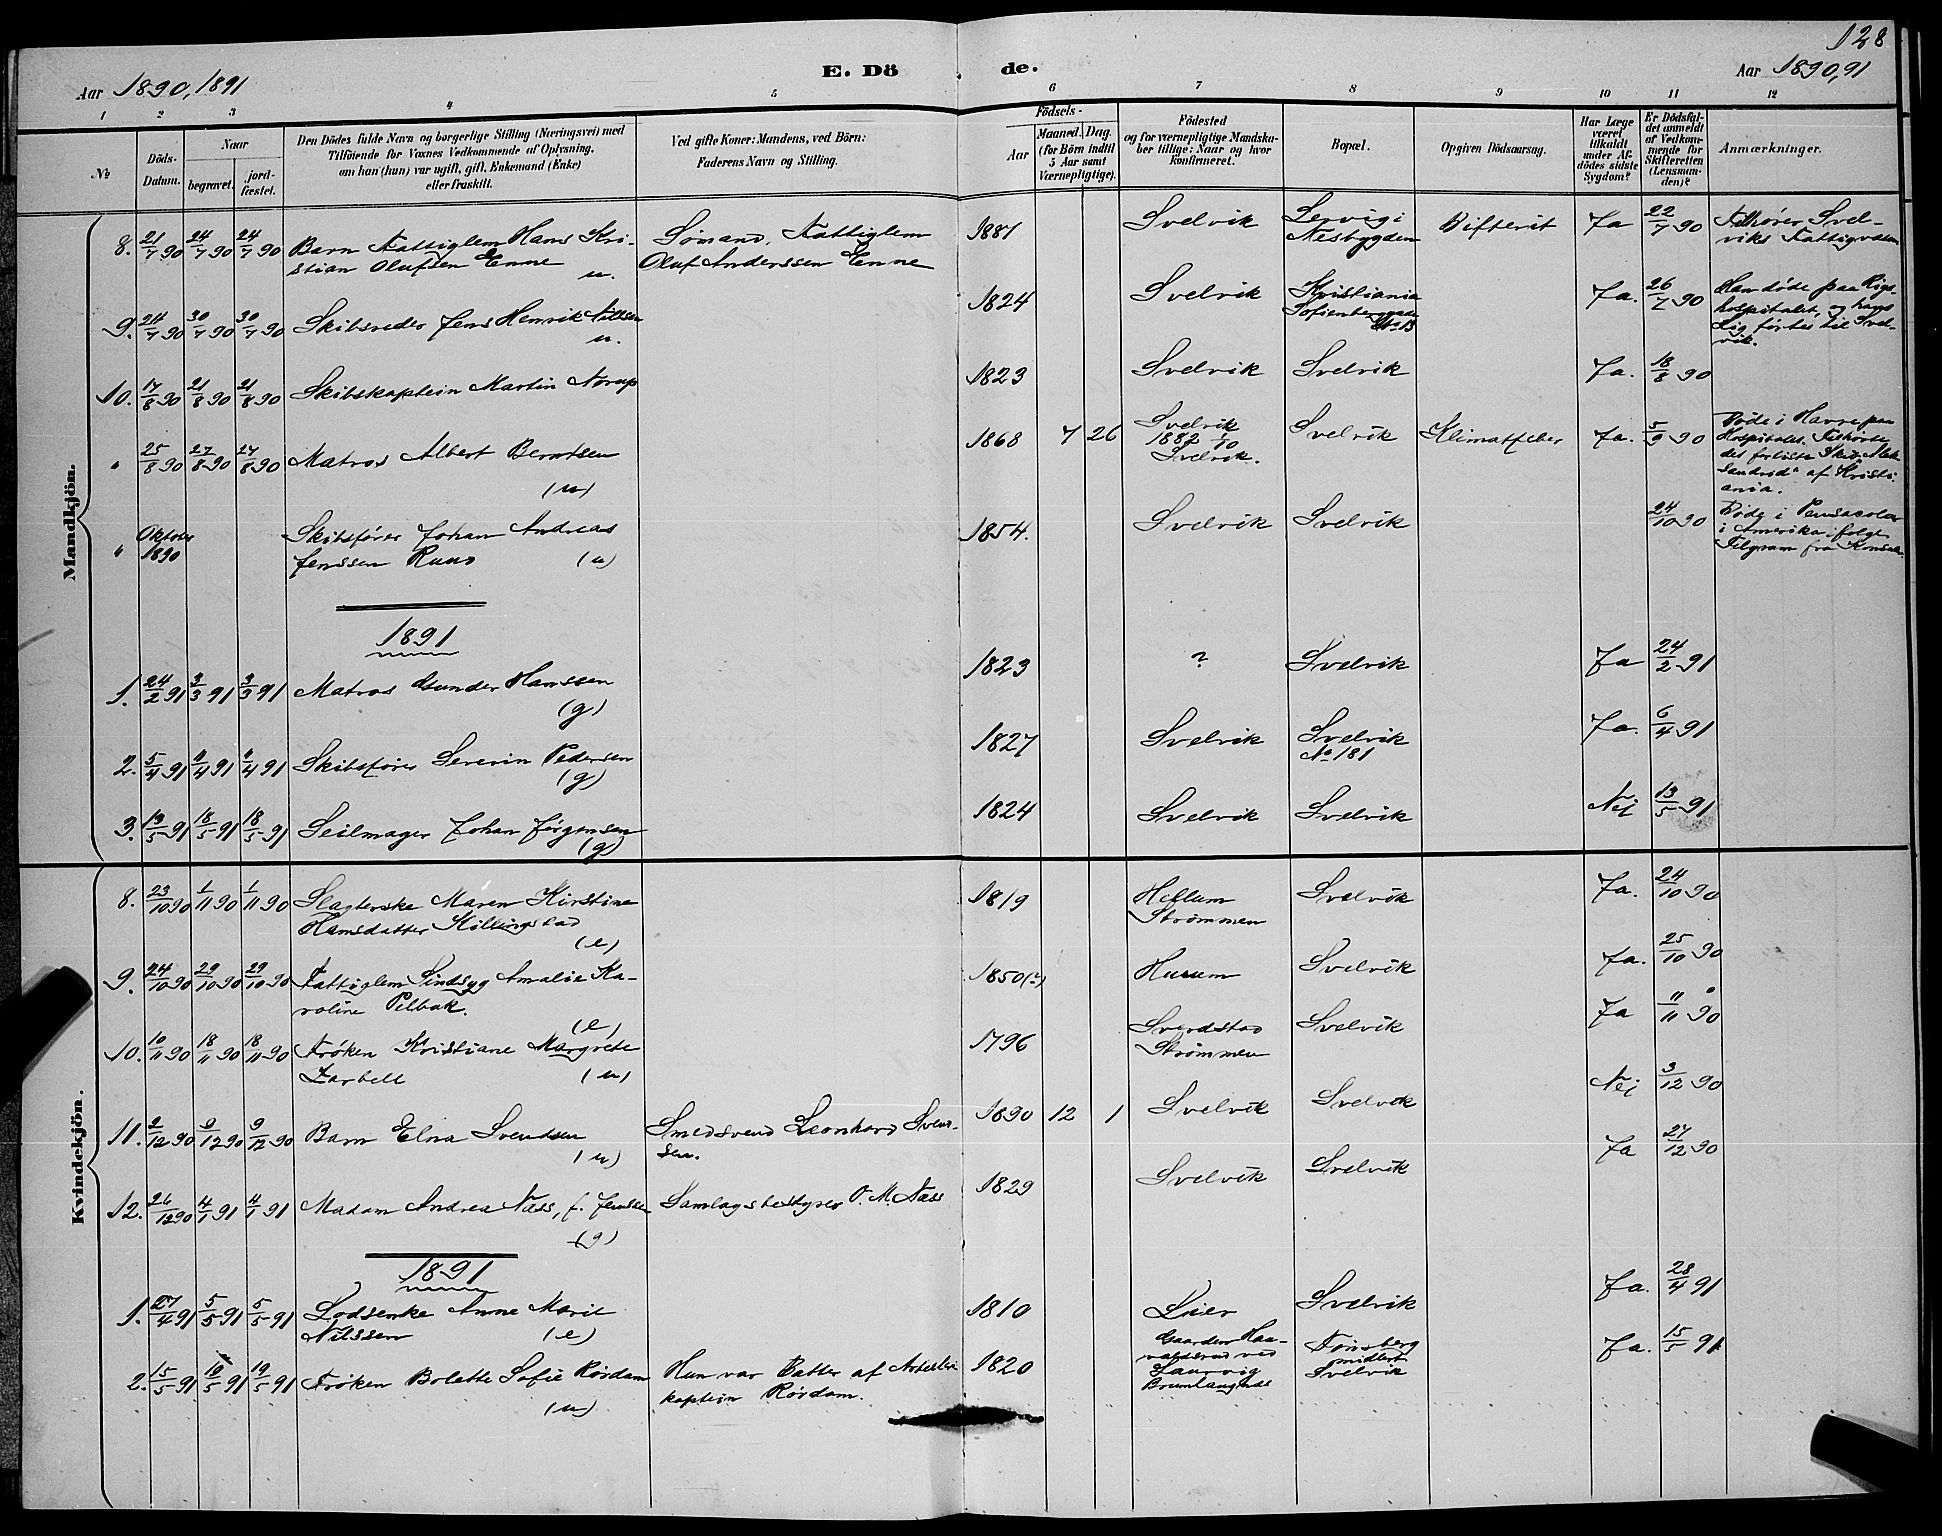 128
Aar 1890, 1891
E. Dö de.
Aar 1890, 91
1 2 3 4 5 6 7 8 9 10 11 12
№
Döds-
Datum.
Naar
begravet.
jord-
fæstet.
Den Dödes fulde Navn og borgerlige Stilling (Næringsvei) med
Tilföiende for Voxnes Vedkommende af Oplysning,
om han (hun) var ugift, gift, Enkemand (Enke)
eller fraskilt.
Ved gifte Koner: Mandens, ved Börn:
Faderens Navn og Stilling.
Födsels-
Aar
Maaned. Dag.
(for Börn indtil
5 Aar samt
Værnepligtige).
Födested
og for værnepligtige Mandska-
ber tillige: Naar og hvor
konfirmeret.
Bopæl.
Opgiven Dödsaarsag.
Har Læge
været
tilkaldt
under Af-
dödes sidste
Sygdom?
Er Dödsfal-
det anmeldt
af Vedkom-
mende for
Skifteretten
(Lensman-
den)?
Anmærkninger.
Mandkjön.
8. 21/7 90 24/7 90 24/7 90 Barn Fattiglem Hans Kri- Sømand, Fattiglem 1881 Svelvik Lervig i Difterit Ja 22/7 90 Tilhører Svel-
stian Olufsen Enne u. Oluf Anderssen Enne Nesbygden viks Fattigvæsen
9. 24/7 90 30/7 90 30/7 90 Skibsreder Jens Henrik Nilssen 1824 Svelvik Kristiania Ja. 26/7 90 Han døde paa Rigs-
u. hospitalet, og hans
Lig førtes til Svel-
vik.
10. 17/8 90 21/8 90 21/8 90 Skibskaptein Martin Norup 1823 Svelvik Svelvik Ja. 18/8 90
" 25/8 90 27/8 90 27/8 90 Matros Albert Berntsen 1868 7 26 Svelvik Svelvik Klimatfeber Ja. 5/9 90 Døde i Havre paa
(u) 1882 1/10 Hospitalet. Tilhørte
Svelvik. det forliste Skib
af Kristi-
ania.
" Oktober Skibsfører Johan Andreas 1854. Svelvik Svelvik 24/10 90 Døde i Pensacola
1890 Jenssen Ruud (u) i Amerika ifølge
Telgram fra Konsul.
1891
1. 24/2 91 3/3 91 3/3 91 Matros Gunder Hanssen 1823 ? Svelvik Ja 24/2 91
(g)
2. 5/4 91 /4 91 /4 91 Skibsfører Severin Pedersen 1827 Svelvik Svelvik Ja. 6/4 91
(g) No 181
3. 13/5 91 18/5 91 18/5 91 Seilmager Johan Jørgensen 1824 Svelvik Svelvik Nej 13/5 91
(g)
Kvindekjön.
8. 23/10 90 1/11 90 1/11 90 Slagterske Maren Kirstine 1819 Hellum Svelvik Ja. 24/10 90
Hansdatter Killingstad (e) Strømmen
9. 24/10 90 29/10 90 29/10 90 Fattiglem Sindsyg Amalie Ka- 1850(?) Hurum Svelvik Ja. 25/10 90
roline Pilbak. (e)
10. 10/11 90 18/11 90 18/11 90 Frøken Kristiane Margrete 1796 Sverdstad Svelvik Ja 11/11 90
Zarbell (u) Strømmen
11. 2/12 90 9/12 90 9/12 90 Barn Elna Svendsen Smedsvend Leonhard Svend- 1890 12 1 Svelvik Svelvik Nej 3/12 90
(u) sen.
12. 26/12 90 4/1 91 4/1 91 Madam Andrea Næss, f. Jenssen Samlagsbestyrer O. M. Næss 1829 Svelvik Svelvik Ja 27/12 90
(g)
1891
1. 27/4 91 5/5 91 5/5 91 Lodsenke Anne Marie 1810 Lier Svelvik Ja. 28/4 91
Nilssen (e)
2. 15/5 91 19/5 91 19/5 91 Frøken Bolette Sofie Rørdam Hun var Datter af Artilleri- 1820 Gaarden Hau- Tønsberg Ja. 15/5 91
(u) kaptein Rørdam. ved midlert.
Laurvig Svelvik
Brunlangnæs